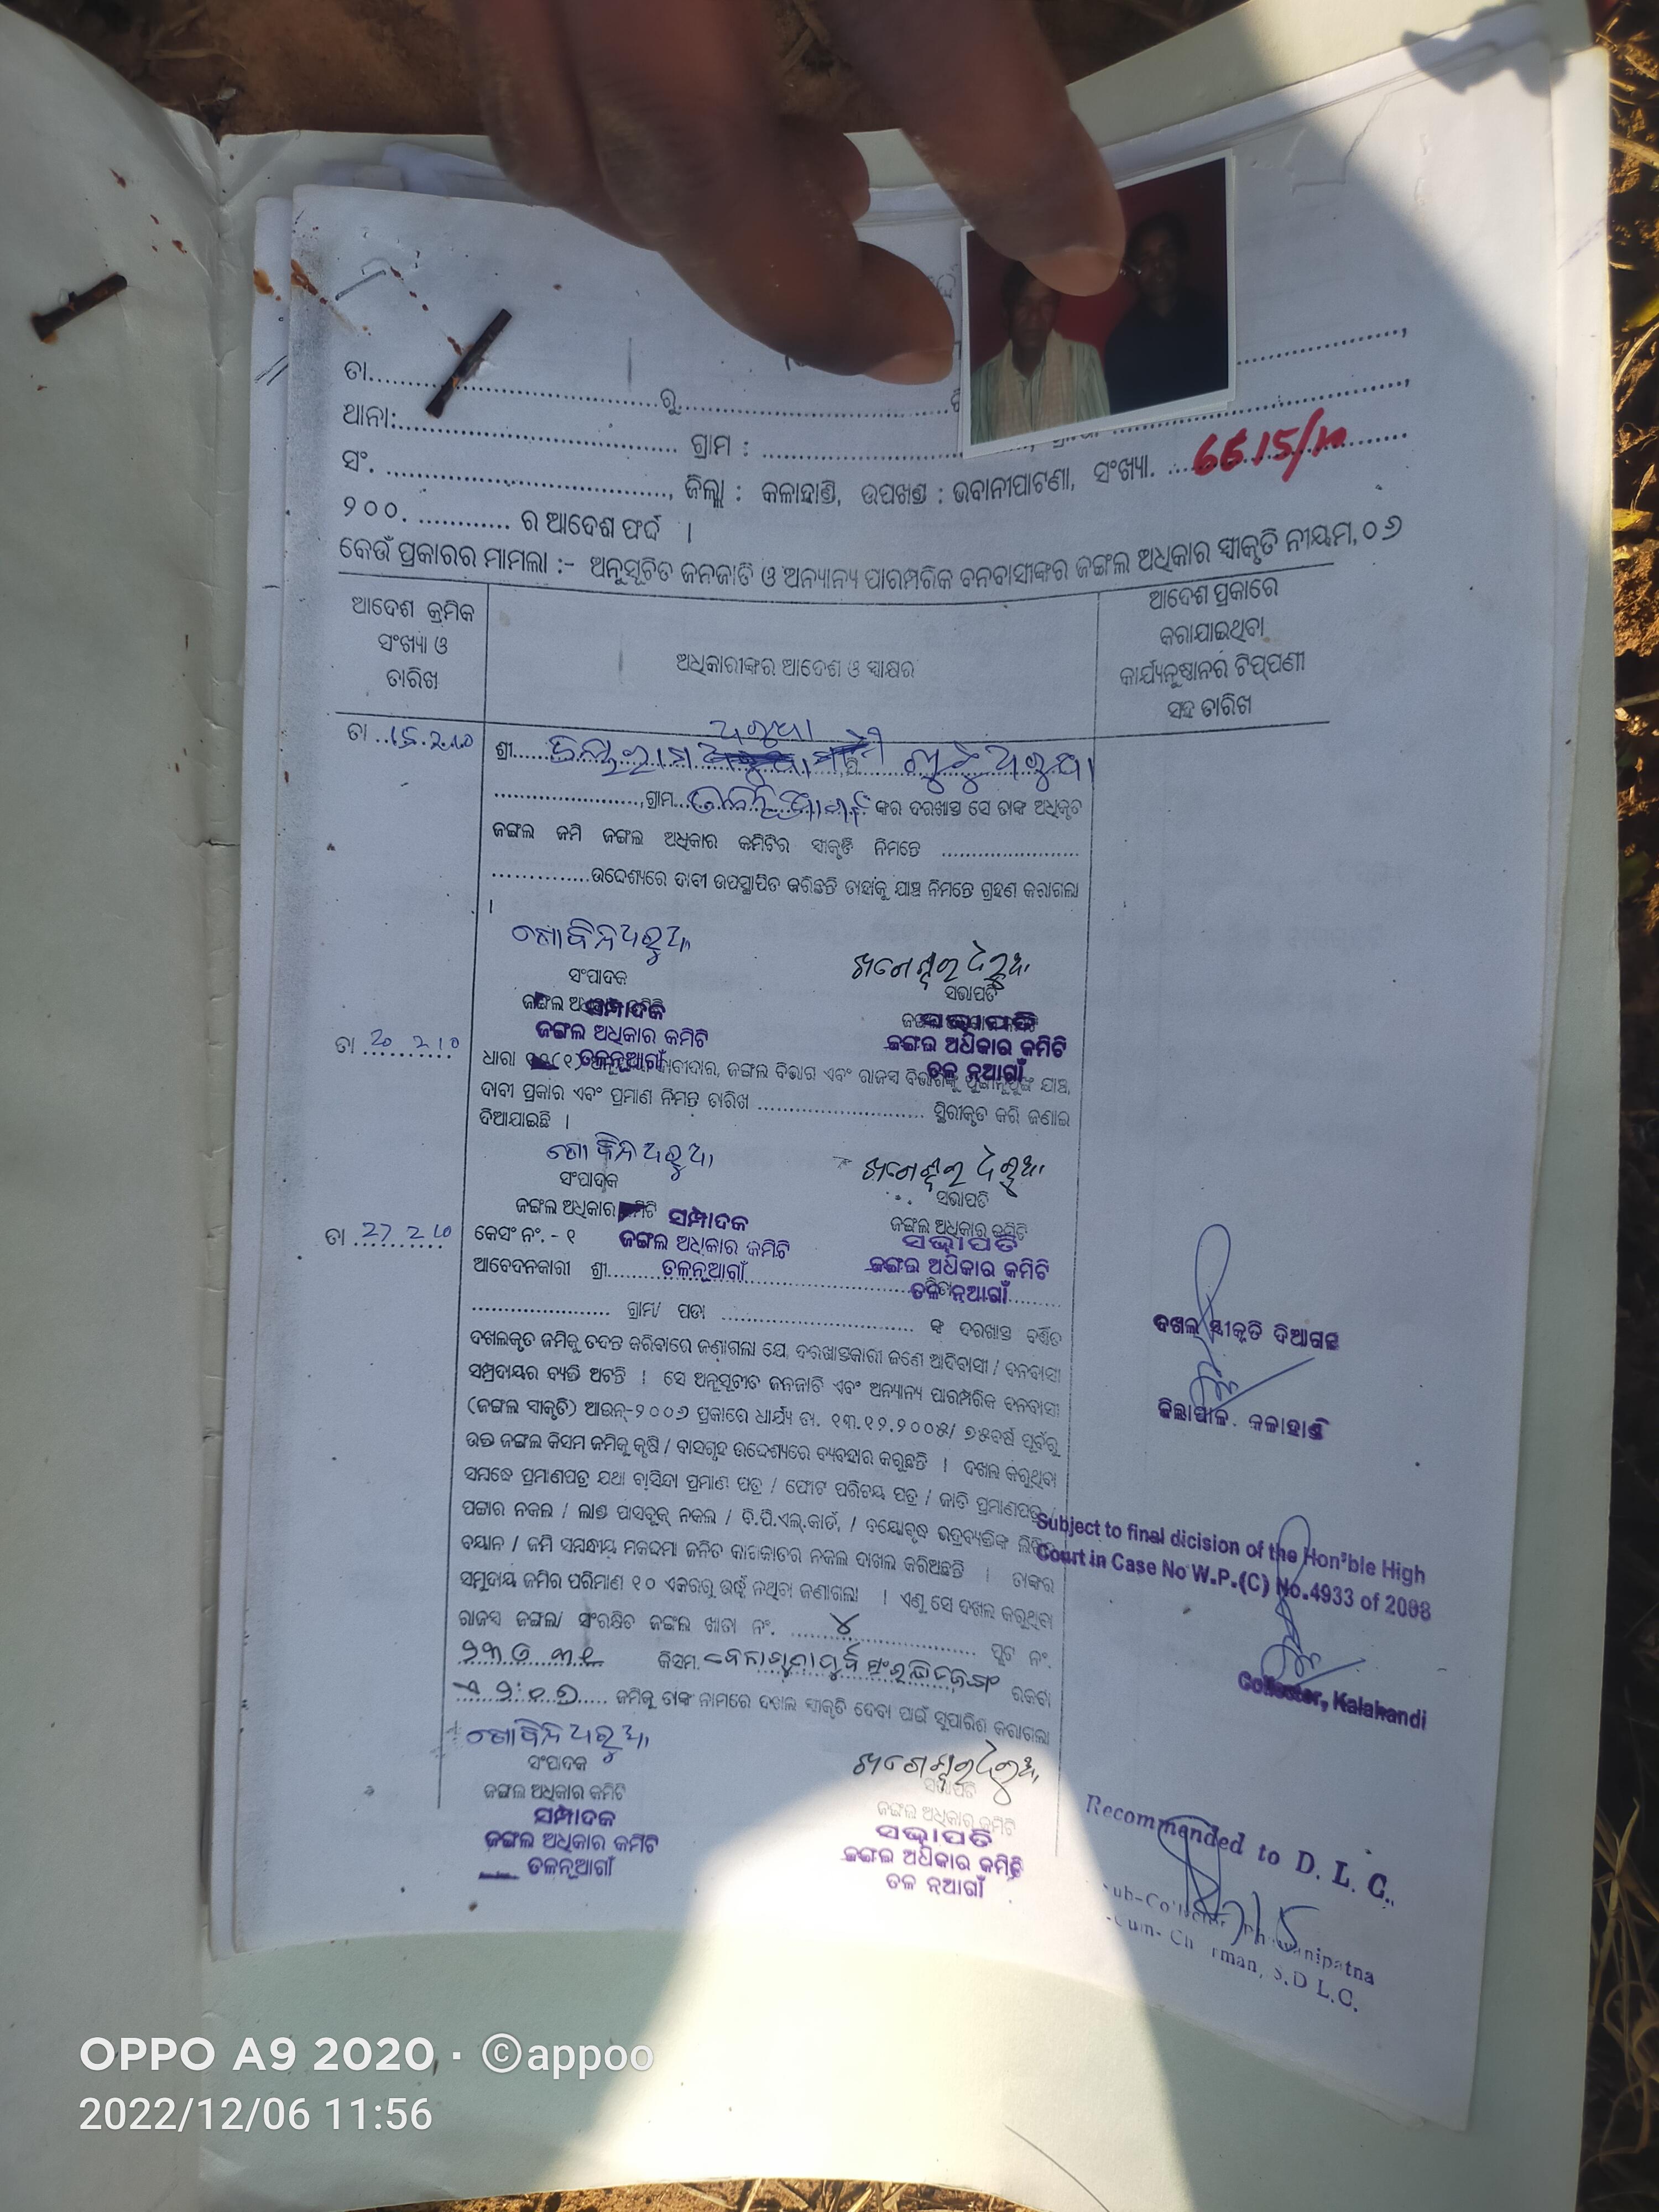 ତା..............................ରୁ..............................
ଥାନା:.............................. ଗ୍ରାମ : ..............................
ସଂ. .............................., ଜିଲ୍ଲା : କଳାହାଣ୍ଡି, ଉପଖଣ୍ଡ : ଭବାନୀପାଟଣା, ସଂଖ୍ୟା. 6615/10
୨୦୦. ............ ର ଆଦେଶ ଫର୍ଦ୍ଦ ।
କେଉଁ ପ୍ରକାରର ମାମଲା :- ଅନୁସୂଚିତ ଜନଜାତି ଓ ଅନ୍ୟାନ୍ୟ ପାରମ୍ପରିକ ବନବାସୀଙ୍କର ଜଙ୍ଗଲ ଅଧିକାର ସ୍ୱୀକୃତି ନୀୟମ,୦୬
ଆଦେଶ କ୍ରମିକ
ସଂଖ୍ୟା ଓ
ତାରିଖ
ଅଧିକାରୀଙ୍କର ଆଦେଶ ଓ ସ୍ୱାକ୍ଷର
ଆଦେଶ ପ୍ରକାରେ
କରାଯାଇଥିବା
କାର୍ଯ୍ୟାନୁଷ୍ଠାନର ଟିପ୍ପଣୀ
ସହ ତାରିଖ
ତା ..15.2.10
ଶ୍ରୀ.....
....................,ଗ୍ରାମ..... ଙ୍କର ଦରଖାସ୍ତ ସେ ତାଙ୍କ ଅଧିକୃତ
ଜଙ୍ଗଲ ଜମି ଜଙ୍ଗଲ ଅଧିକାର କମିଟିର ସ୍ୱୀକୃତି ନିମନ୍ତେ ....................
..............ଉଦ୍ଦେଶ୍ୟରେ ଦାବୀ ଉପସ୍ଥାପିତ କରିଛନ୍ତି ତାହାକୁ ଯାଞ୍ଚ ନିମନ୍ତେ ଗ୍ରହଣ କରାଗଲା
।
ସଂପାଦକ
ସଭାପତି
ସମ୍ପାଦକ
ଜଙ୍ଗଲ ଅଧିକାର କମିଟି
ତଳନୂଆଗାଁ
ସଭାପତି
ଜଙ୍ଗଲ ଅଧିକାର କମିଟି
ତଳ ନୂଆଗାଁ
ତା 20 2 10
ଧାରା ଦାବୀଦାର, ଜଙ୍ଗଲ ବିଭାଗ ଏବଂ ରାଜସ୍ୱ ଯାଞ୍ଚ,
ଦାବୀ ପ୍ରକାର ଏବଂ ପ୍ରମାଣ ନିମନ୍ତେ ତାରିଖ ........................ ସ୍ଥିରୀକୃତ କରି ଜଣାଇ
ଦିଆଯାଇଛି ।
ସଂପାଦକ
ସଭାପତି
ଜଙ୍ଗଲ ଅଧିକାର କମିଟି
ଜଙ୍ଗଲ ଅଧିକାର କମିଟି
ସମ୍ପାଦକ
ଜଙ୍ଗଲ ଅଧିକାର କମିଟି
ତଳନୂଆଗାଁ
ସଭାପତି
ଜଙ୍ଗଲ ଅଧିକାର କମିଟି
ତଳ ନୂଆଗାଁ
ତା 27 2 10
କେସଂ ନଂ. - ୧
ଆବେଦନକାରୀ ଶ୍ରୀ..............................
.................... ଗ୍ରାମ/ ପଡା .............................. ଙ୍କ ଦରଖାସ୍ତ ବର୍ଣ୍ଣିତ
ଦଖଲକୃତ ଜମିକୁ ତଦନ୍ତ କରିବାରେ ଜଣାଗଲା ଯେ, ଦରଖାସ୍ତକାରୀ ଜଣେ ଆଦିବାସୀ / ବନବାସୀ
ସମ୍ପ୍ରଦାୟର ବ୍ୟକ୍ତି ଅଟନ୍ତି । ସେ ଅନୁସୂଚୀତ ଜନଜାତି ଏବଂ ଅନ୍ୟାନ୍ୟ ପାରମ୍ପରିକ ବନବାସୀ
(ଜଙ୍ଗଲ ସ୍ୱୀକୃତି) ଆଇନ୍-୨୦୦୬ ପ୍ରକାରେ ଧାର୍ଯ୍ୟ ତା. ୧୩.୧୨.୨୦୦୫/ ୭୫ବର୍ଷ ପୂର୍ବରୁ
ଉକ୍ତ ଜଙ୍ଗଲ କିସମ ଜମିକୁ କୃଷି / ବାସଗୃହ ଉଦ୍ଦେଶ୍ୟରେ ବ୍ୟବହାର କରୁଛନ୍ତି । ଦଖଲ କରୁଥିବା
ସମ୍ବନ୍ଧେ ପ୍ରମାଣପତ୍ର ଯଥା ବାସିନ୍ଦା ପ୍ରମାଣ ପତ୍ର / ଫୋଟ ପରିଚୟ ପତ୍ର / ଜାତି ପ୍ରମାଣପତ୍ର /
ପଟ୍ଟାର ନକଲ / ଲାଣ୍ଡ ପାସବୁକ୍ ନକଲ / ବି.ପି.ଏଲ୍.କାର୍ଡ, / ବୟୋବୃଦ୍ଧ ଭଦ୍ରବ୍ୟକ୍ତିଙ୍କ ଲିଖିତ
ବୟାନ / ଜମି ସମ୍ବନ୍ଧୀୟ ମକଦ୍ଦମା ଜନିତ କାଗଜାତର ନକଲ ଦାଖଲ କରିଅଛନ୍ତି । ତାଙ୍କର
ସମୁଦାୟ ଜମିର ପରିମାଣ ୧୦ ଏକରରୁ ଉର୍ଦ୍ଧ୍ୱ ନଥିବା ଜଣାଗଲା । ଏଣୁ ସେ ଦଖଲ କରୁଥିବା
ରାଜସ୍ୱ ଜଙ୍ଗଲ/ ସଂରକ୍ଷିତ ଜଙ୍ଗଲ ଖାତା ନଂ. ..........୪.......... ପ୍ଲଟ ନଂ.
କିସମ. ରକବା
ଜମିକୁ ତାଙ୍କ ନାମରେ ଦଖଲ ସ୍ୱୀକୃତି ଦେବା ପାଇଁ ସୁପାରିଶ କରାଗଲା
ସଂପାଦକ
ସଭାପତି
ଜଙ୍ଗଲ ଅଧିକାର କମିଟି
ଜଙ୍ଗଲ ଅଧିକାର କମିଟି
ସମ୍ପାଦକ
ଜଙ୍ଗଲ ଅଧିକାର କମିଟି
ତଳନୂଆଗାଁ
ସଭାପତି
ଜଙ୍ଗଲ ଅଧିକାର କମିଟି
ତଳ ନୂଆଗାଁ
ଦଖଲ ସ୍ୱୀକୃତି ଦିଆଗଲା
ଜିଲ୍ଲାପାଳ. କଳାହାଣ୍ଡି
Subject to final dicision of the Hon'ble High
Court in Case No W.P.(C) No.4933 of 2008
Collector, Kalahandi
Recommended to D. L. C.,
Sub-Collector, Bhawanipatna
-Cum- Chairman, S.D L.C.
OPPO A9 2020 · ©appoo
2022/12/06 11:56